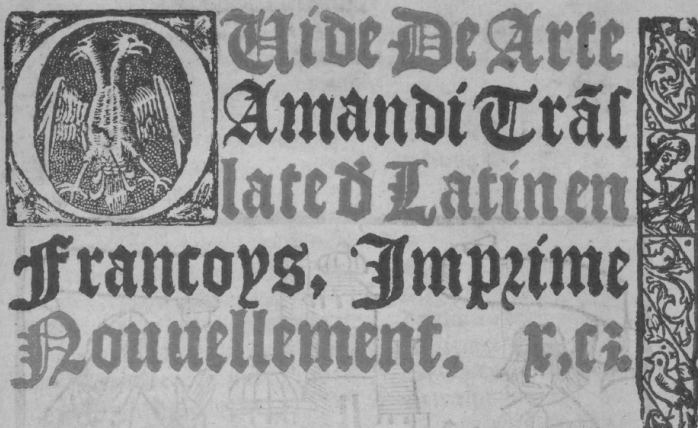 OUide De Arte
Amandi Trãſ
late ď Latin en
Francoys, Imprime
Nouuellement, x,cꝫ.